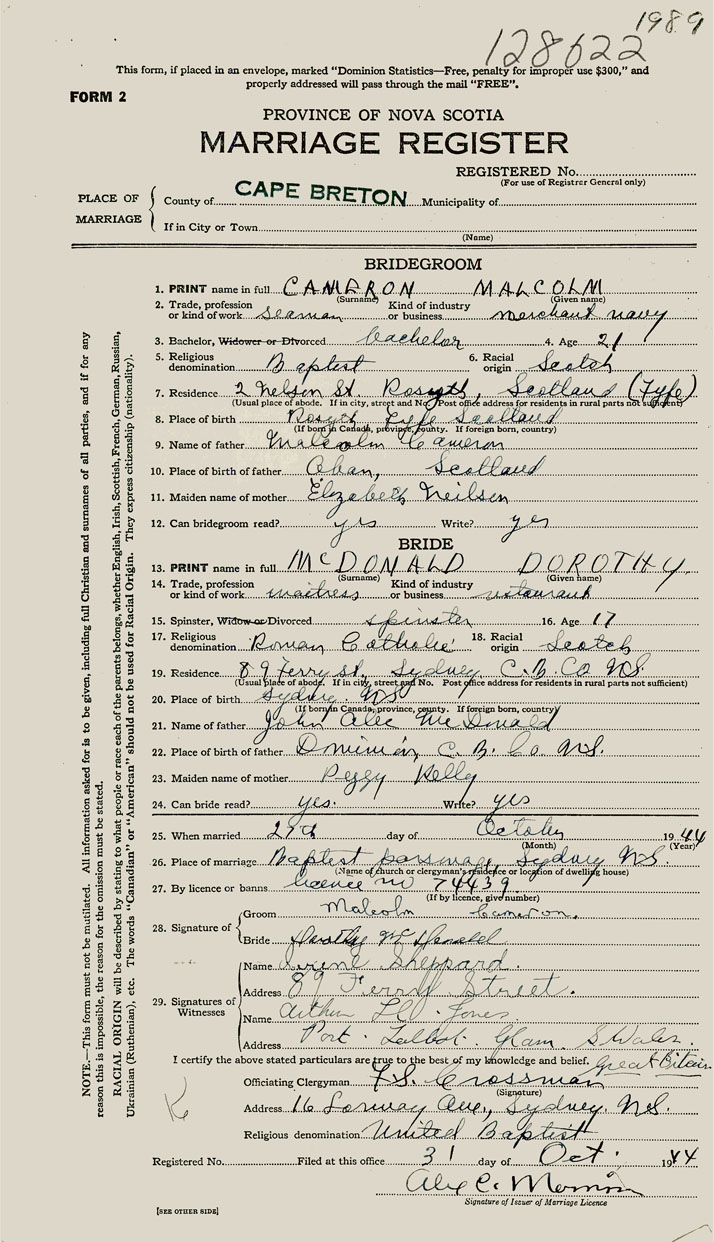 1989
128622
This form, if placed in an envelope, marked "Dominion Statistics—Free, penalty for improper use $300," and
properly addressed will pass through the mail "FREE".
FORM 2
PROVINCE OF NOVA SCOTIA
MARRIAGE REGISTER
REGISTERED No.
(For use of Registrar General only)
PLACE OF MARRIAGE
County of CAPE BRETON Municipality of
If in City or Town
(Name)
BRIDEGROOM
1. PRINT name in full CAMERON MALCOLM
(Surname) (Given name)
2. Trade, profession or kind of work seaman Kind of industry or business merchant navy
3. Bachelor, Widower or Divorced bachelor 4. Age 21
5. Religious denomination Baptist 6. Racial origin Scotch
7. Residence 2 Nelson St Rosyth, Scotland (Fyfe)
(Usual place of abode. If in city, street and No. Post office address for residents in rural parts not sufficient)
8. Place of birth Rosyth Fyfe Scotland
(If born in Canada, province, county. If foreign born, country)
9. Name of father Malcolm Cameron
10. Place of birth of father Oban, Scotland
11. Maiden name of mother Elizabeth Neilsen
12. Can bridegroom read? yes Write? yes
BRIDE
13. PRINT name in full McDONALD DOROTHY
(Surname) (Given name)
14. Trade, profession or kind of work waitress Kind of industry or business restaurant
15. Spinster, Widow or Divorced spinster 16. Age 17
17. Religious denomination Roman Catholic 18. Racial origin Scotch
19. Residence 89 Ferry st, Sydney, C.B. Co NS
(Usual place of abode. If in city, street and No. Post office address for residents in rural parts not sufficient)
20. Place of birth Sydney. NS
(If born in Canada, province, county. If foreign born, country)
21. Name of father John Alec McDonald
22. Place of birth of father Dominion, C. B. Co N.S.
23. Maiden name of mother Peggy Kelly
24. Can bride read? yes. Write? yes
25. When married 29th day of October 1944
(Month) (Year)
26. Place of marriage Baptist parsonage, Sydney N.S.
(Name of church or clergyman's residence or location of dwelling house)
27. By licence or banns licence no 74439
(If by licence, give number)
28. Signature of
Groom Malcolm Cameron.
Bride Dorothy McDonald
29. Signatures of Witnesses
Name Irene Sheppard.
Address 89 Ferry Street.
Name Arthur Jones
Address Port. Talbot. Glam. S Wales.
I certify the above stated particulars are true to the best of my knowledge and belief. Great Britain.
Officiating Clergyman F.S. Crossman
(Signature)
Address 16 Lorway Ave., Sydney. N.S.
Religious denomination United Baptist
Registered No. Filed at this office 31 day of Oct. 1944
Alex C. Morrison
Signature of Issuer of Marriage Licence
[SEE OTHER SIDE]
NOTE.—This form must not be mutilated. All information asked for is to be given, including full Christian and surnames of all parties, and if for any
reason this is impossible, the reason for the omission must be stated.
RACIAL ORIGIN will be described by stating to what people or race each of the parents belongs, whether English, Irish, Scottish, French, German, Russian,
Ukrainian (Ruthenian), etc. The words "Canadian" or "American" should not be used for Racial Origin. They express citizenship (nationality).